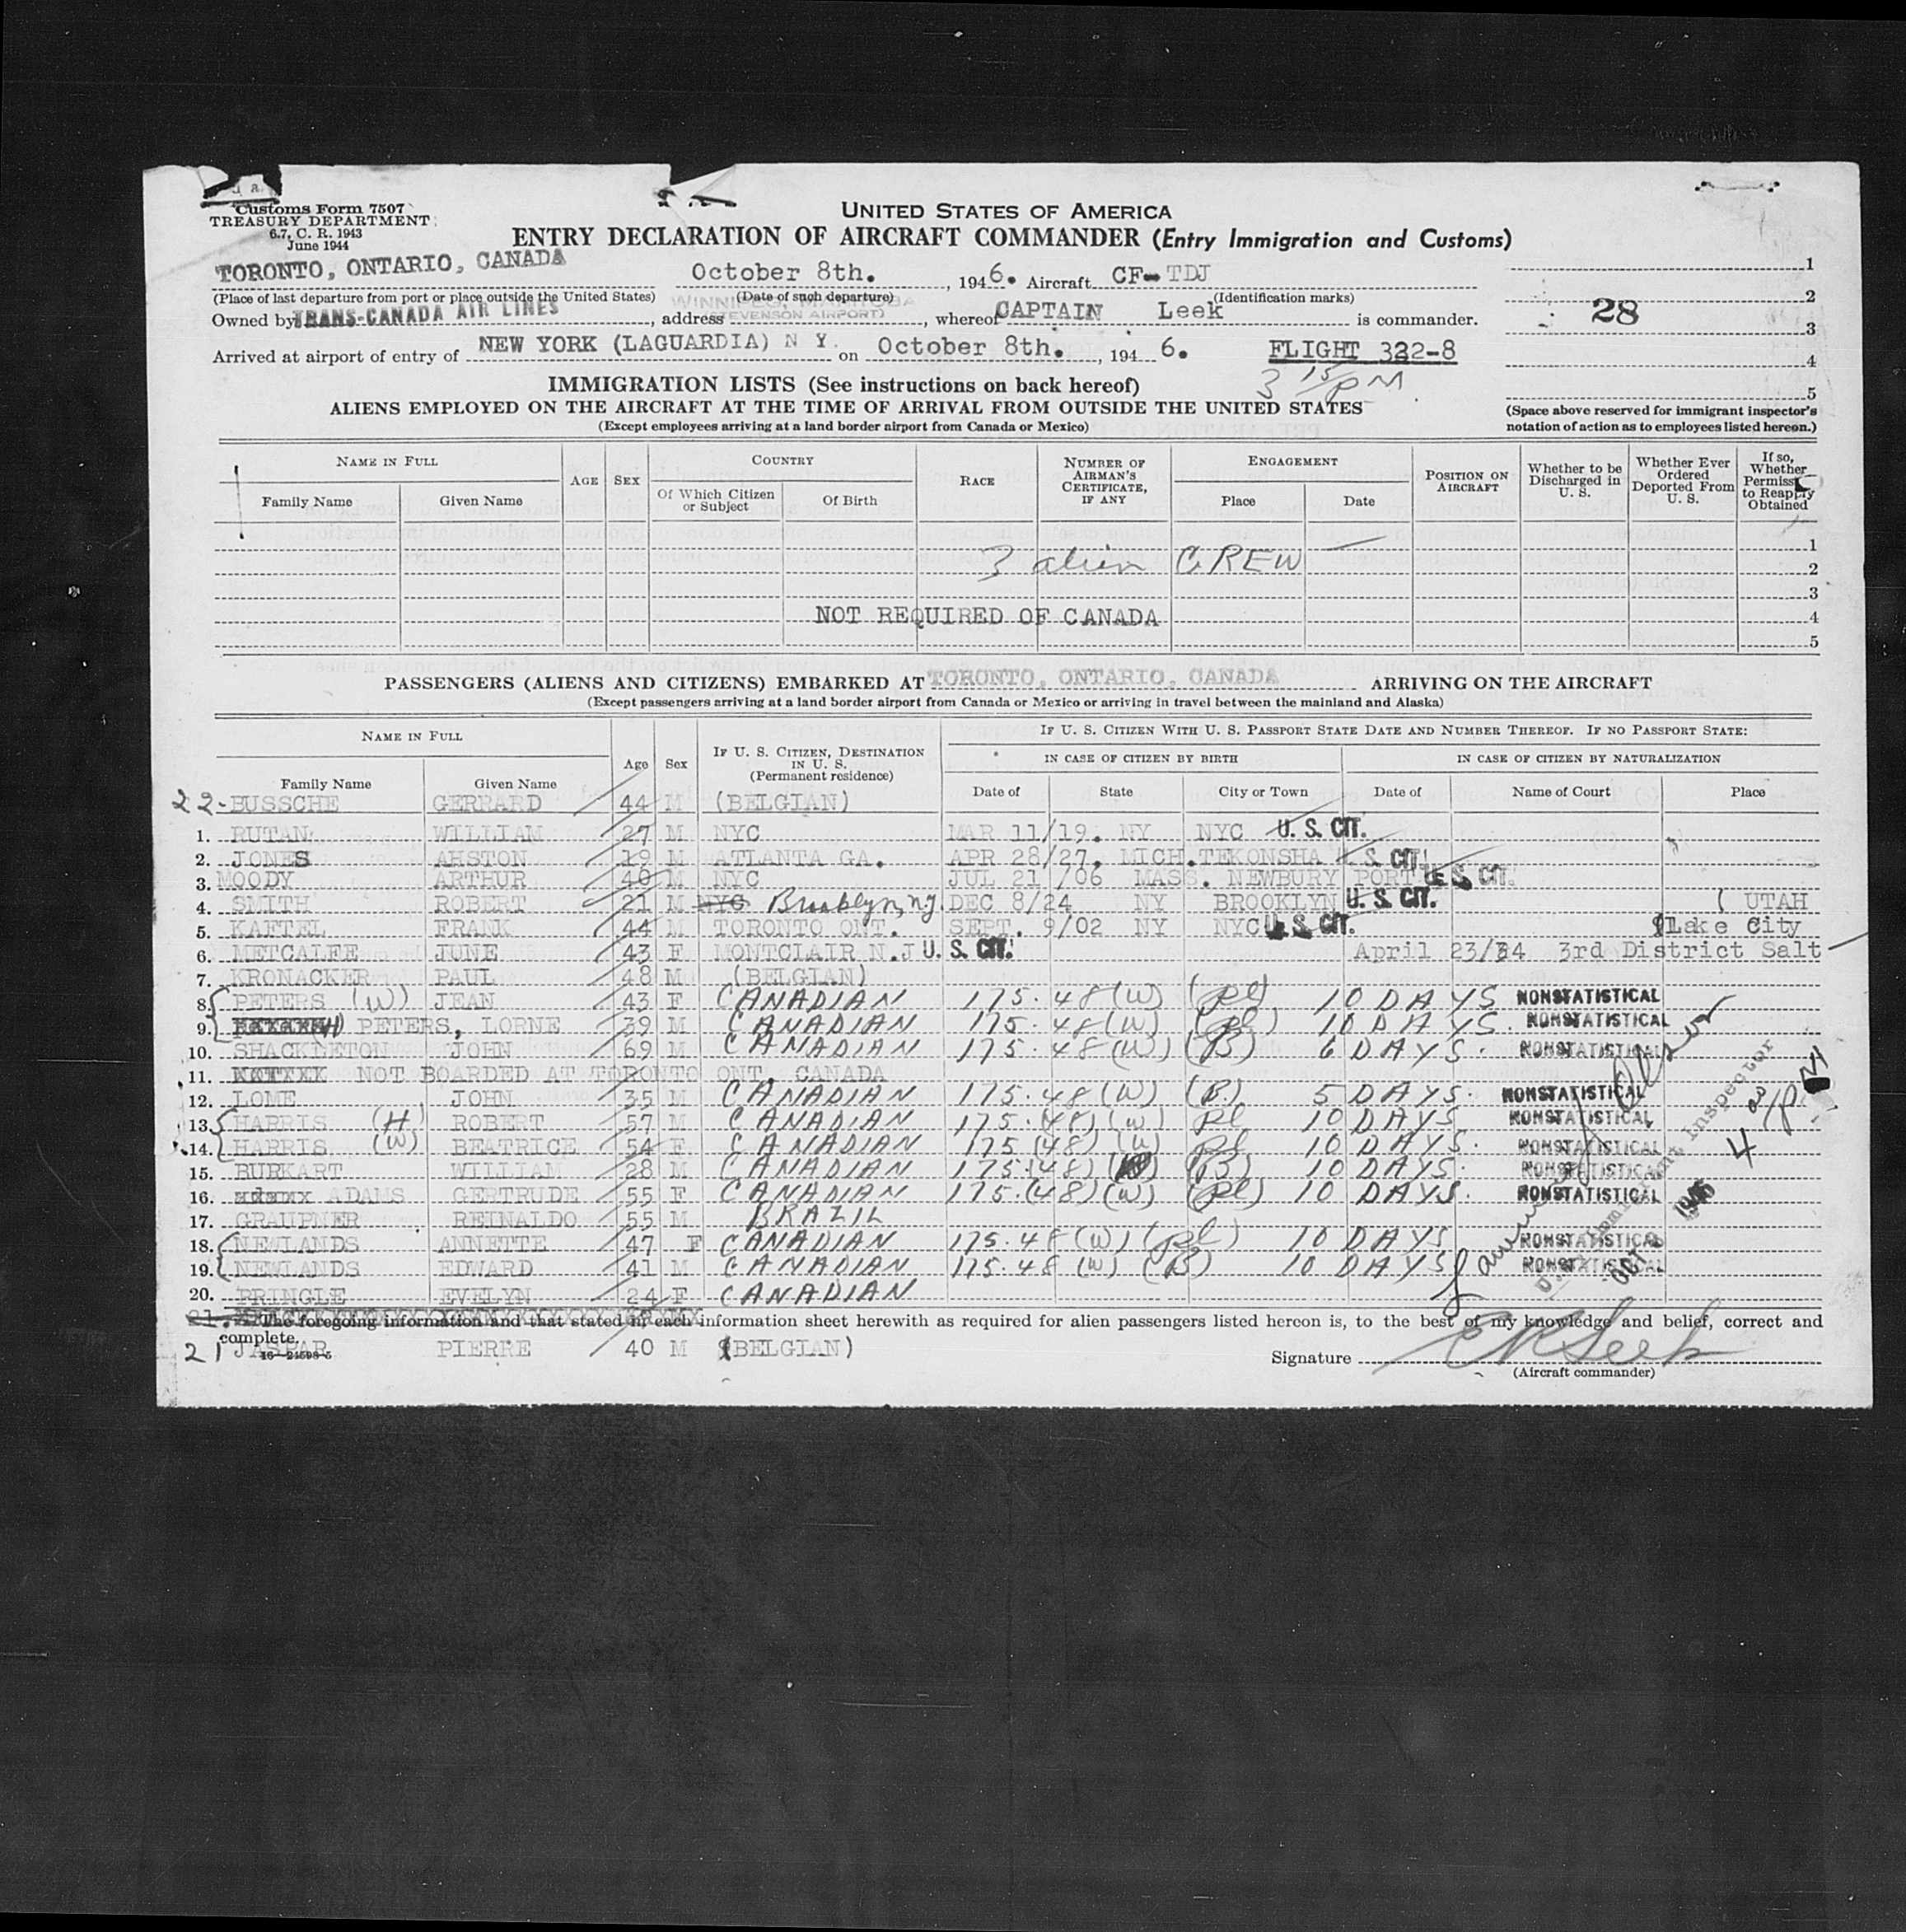 Customs Form 7507
TREASURY DEPARTMENT
6.7, C. R. 1943
June 1944
UNITED STATES OF AMERICA
ENTRY DECLARATION OF AIRCRAFT COMMANDER (Entry Immigration and Customs)
TORONTO, ONTARIO, CANADA October 8th. , 1946. Aircraft CF-TDJ 1
(Place of last departure from port or place outside the United States) (Date of such departure) (Identification marks) 2
28
Owned by TRANS-CANADA AIR LINES , address WINNIPEG, MANITOBA (STEVENSON AIRPORT) , whereof CAPTAIN Leek is commander. 3
Arrived at airport of entry of NEW YORK (LAGUARDIA) N Y. on October 8th. , 194 6. FLIGHT 322-8 4
3 15/PM
5
IMMIGRATION LISTS (See instructions on back hereof)
ALIENS EMPLOYED ON THE AIRCRAFT AT THE TIME OF ARRIVAL FROM OUTSIDE THE UNITED STATES
(Except employees arriving at a land border airport from Canada or Mexico)
(Space above reserved for immigrant inspector's notation of action as to employees listed hereon.)
NAME IN FULL AGE SEX COUNTRY RACE NUMBER OF AIRMAN'S CERTIFICATE, IF ANY ENGAGEMENT POSITION ON AIRCRAFT Whether to be Discharged in U. S. Whether Ever Ordered Deported From U. S. If so, Whether Permiss to Reapply Obtained
Family Name Given Name Of Which Citizen or Subject Of Birth Place Date
1
3 alien CREW
2
3
NOT REQUIRED OF CANADA 4
5
PASSENGERS (ALIENS AND CITIZENS) EMBARKED AT TORONTO, ONTARIO, CANADA ARRIVING ON THE AIRCRAFT
(Except passengers arriving at a land border airport from Canada or Mexico or arriving in travel between the mainland and Alaska)
NAME IN FULL Age Sex IF U. S. CITIZEN, DESTINATION IN U. S. (Permanent residence) IF U. S. CITIZEN WITH U. S. PASSPORT STATE DATE AND NUMBER THEREOF. IF NO PASSPORT STATE:
IN CASE OF CITIZEN BY BIRTH IN CASE OF CITIZEN BY NATURALIZATION
Family Name Given Name Date of State City or Town Date of Name of Court Place
22- BUSSCHE GERRARD 44 M (BELGIAN)
1. RUTAN WILLIAM 27 M NYC MAR 11/19. NY NYC U. S. CIT.
2. JONES AHSTON 19 M ATLANTA GA. APR 28/27, MICH. TEKONSHA U. S. CIT.
3. MOODY ARTHUR 40 M NYC JUL 21 /06 MASS. NEWBURY PORT U. S. CIT.
4. SMITH ROBERT 21 M NYC Brooklyn, n.y. DEC 8/24 NY BROOKLYN U. S. CIT. ( UTAH
5. KAFTEL FRANK 44 M TORONTO ONT. SEPT. 9/02 NY NYC U. S. CIT. (Lake City
6. METCALFE JUNE 43 F MONTCLAIR N.J U. S. CIT. April 23/34 3rd District Salt
7. KRONACKER PAUL 48 M (BELGIAN)
8. PETERS (W) JEAN 43 F CANADIAN 175.48 (W) (Pl) 10 DAYS NONSTATISTICAL
9. (H) PETERS, LORNE 39 M CANADIAN 175.48 (W) (Pl) 10 DAYS. NONSTATISTICAL
10. SHACKLETON JOHN 69 M CANADIAN 175.48 (W) (B) 6 DAYS. NONSTATISTICAL
11. NOT BOARDED AT TORONTO ONT. CANADA
12. LOME JOHN 35 M CANADIAN 175.48 (W) (B.) 5 DAYS. NONSTATISTICAL
13. HARRIS (H) ROBERT 57 M CANADIAN 175.(48) (W) Pl 10 DAYS NONSTATISTICAL
14. HARRIS (W) BEATRICE 54 F CANADIAN 175 (48) (W) Pl 10 DAYS. NONSTATISTICAL
15. BURKART WILLIAM 28 M CANADIAN 175.(48) (B) 10 DAYS. NONSTATISTICAL
16. ADAMS GERTRUDE 55 F CANADIAN 175.(48) (W) (Pl) 10 DAYS. NONSTATISTICAL
17. GRAUPNER REINALDO 55 M BRAZIL
18. NEWLANDS ANNETTE 47 F CANADIAN 175.48 (W) (Pl) 10 DAYS NONSTATISTICAL
19. NEWLANDS EDWARD 41 M CANADIAN 175.48 (W) (B) 10 DAYS NONSTATISTICAL
20. PRINGLE EVELYN 24 F CANADIAN
Inspector
OCT 8 1946
4 00/PM
21. The foregoing information and that stated in each information sheet herewith as required for alien passengers listed hereon is, to the best of my knowledge and belief, correct and
complete.
21 JASPAR PIERRE 40 M (BELGIAN)
16-24598-5
Signature
(Aircraft commander)